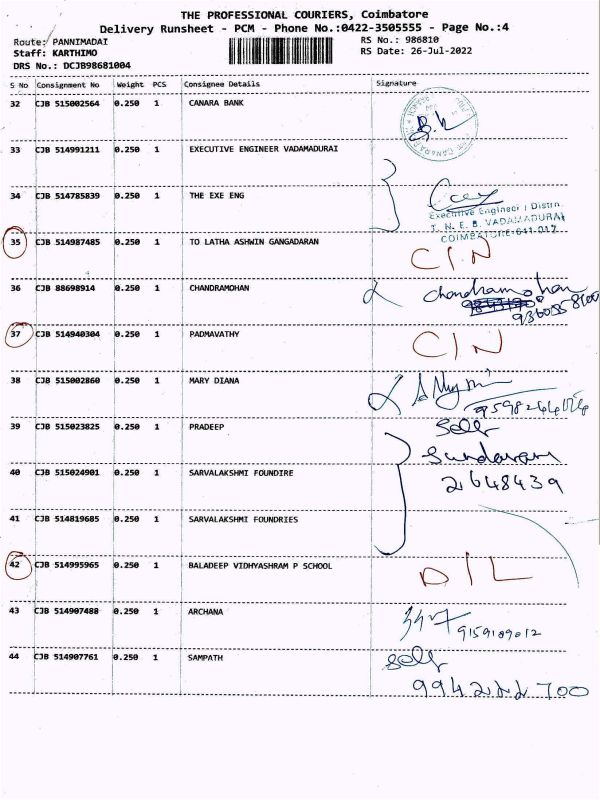 THE PROFESSIONAL COURIERS, Coimbatore
Delivery Runsheet - PCM - Phone No.:0422-3505555 - Page No.:4
Route: PANNIMADAI
RS No.: 986810
Staff: KARTHIMO
RS Date: 26-Jul-2022
DRS No.: DCJB98681004
S No Consignment No Weight PCS Consignee Details Signature
32 CJB 515002564 0.250 1 CANARA BANK
33 CJB 514991211 0.250 1 EXECUTIVE ENGINEER VADAMADURAI
34 CJB 514785839 0.250 1 THE EXE ENG
Executive Engineer / Distn.
T. N. E. B. VADAMADURAI
COIMBATORE-641 017
35 CJB 514987485 0.250 1 TO LATHA ASHWIN GANGADARAN C/N
36 CJB 88698914 0.250 1 CHANDRAMOHAN Chandramohan
37 CJB 514940304 0.250 1 PADMAVATHY C/N
38 CJB 515002860 0.250 1 MARY DIANA
39 CJB 515023825 0.250 1 PRADEEP Self
Sundaram
40 CJB 515024901 0.250 1 SARVALAKSHMI FOUNDIRE 2648439
41 CJB 514819685 0.250 1 SARVALAKSHMI FOUNDRIES
42 CJB 514995965 0.250 1 BALADEEP VIDHYASHRAM P SCHOOL D/L
43 CJB 514907488 0.250 1 ARCHANA 9159109012
44 CJB 514907761 0.250 1 SAMPATH Self
9942222700